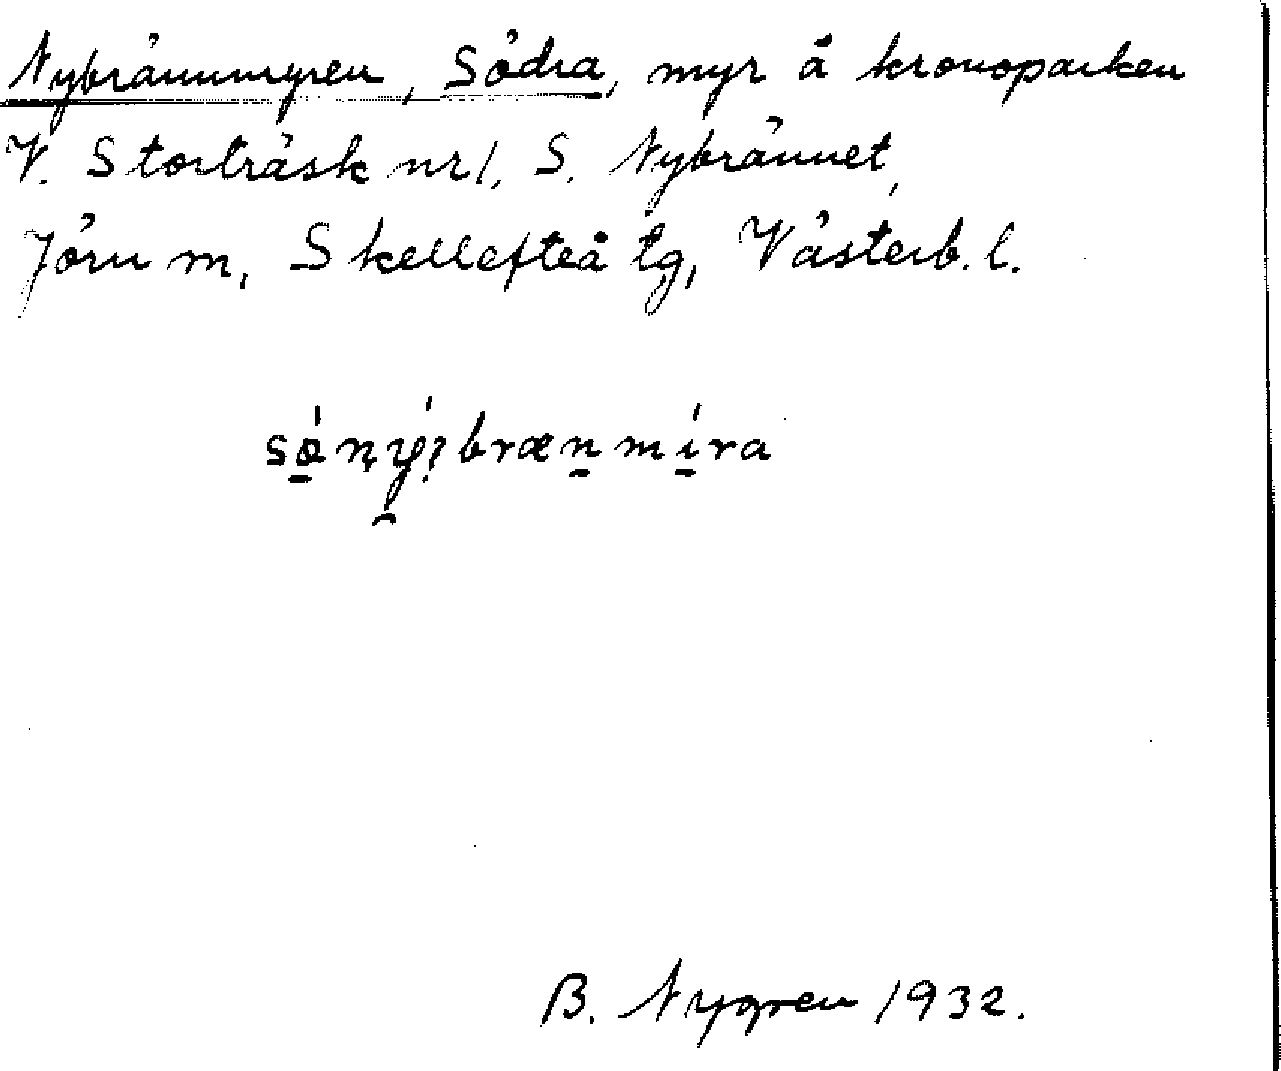 Nybrännmyren, Södra, myr å kronoparken
V. Storträsk nr 1, S. Nybrännet,
Jörn sn, Skellefteå tg, Västerb. l.
B. Nygren 1932.